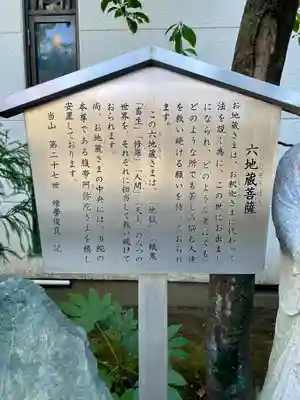 六地蔵菩薩
お地蔵さまは、お釈迦さまに代わって
法を説く為に、この世にお出まし
になられ、どのような者にでも、
どのような所でも苦しみ悩む人達
を救い続ける願いを持っておられ
ます。
この六地蔵さまは、「地獄」「餓鬼」
「畜生」「修羅」「人間」「天上」の六つの
世界を、それぞれに担当して救い続けて
おられます。
尚、お地蔵さまの中央には、当院の
本尊である阿弥陀さまを模し
安置しております。
当山 第二十七世 良 記